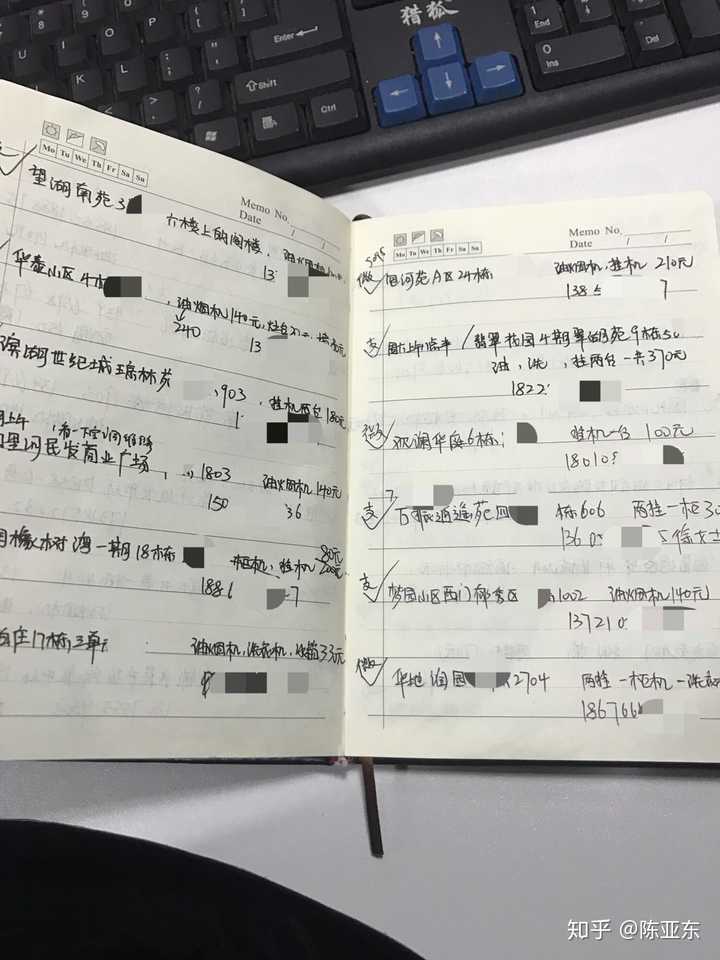 猎狐
Enter
Shift
Ctrl
1
End
0
Ins
Del
Mo Tu We Th Fr Sa Su
Memo No.
Date / /
望湖南苑3
六楼上的阁楼,油烟机
13
华泰小区4栋
,油烟机140元,灶台
240
13
滨湖世纪城琼林苑
,903
,挂机两台180元
1
上午
,看一下空调维修
民发商业广场,
1803
油烟机140元
150
36
橡树湾一期18栋
柜机,挂机
80元
1886
7
庄17栋三单元
油烟机,洗衣机,冰箱33元
Mo Tu We Th Fr Sa Su
Memo No.
Date / /
微
苑A区24栋
油烟机,挂机 210元
138
7
支
周六上午
/翡翠花园4期翠湖苑9栋50
油,洗,挂两台一共370元
1822
观澜华庭6栋
挂机一台 100元
18010
支
逍遥苑四
栋606
两挂一柜30
136
徐女士
支
梦园小区西门
区
1002
油烟机140元
13721
微
华地润园
2704
两挂一柜机一洗衣
186766
知乎 @陈亚东